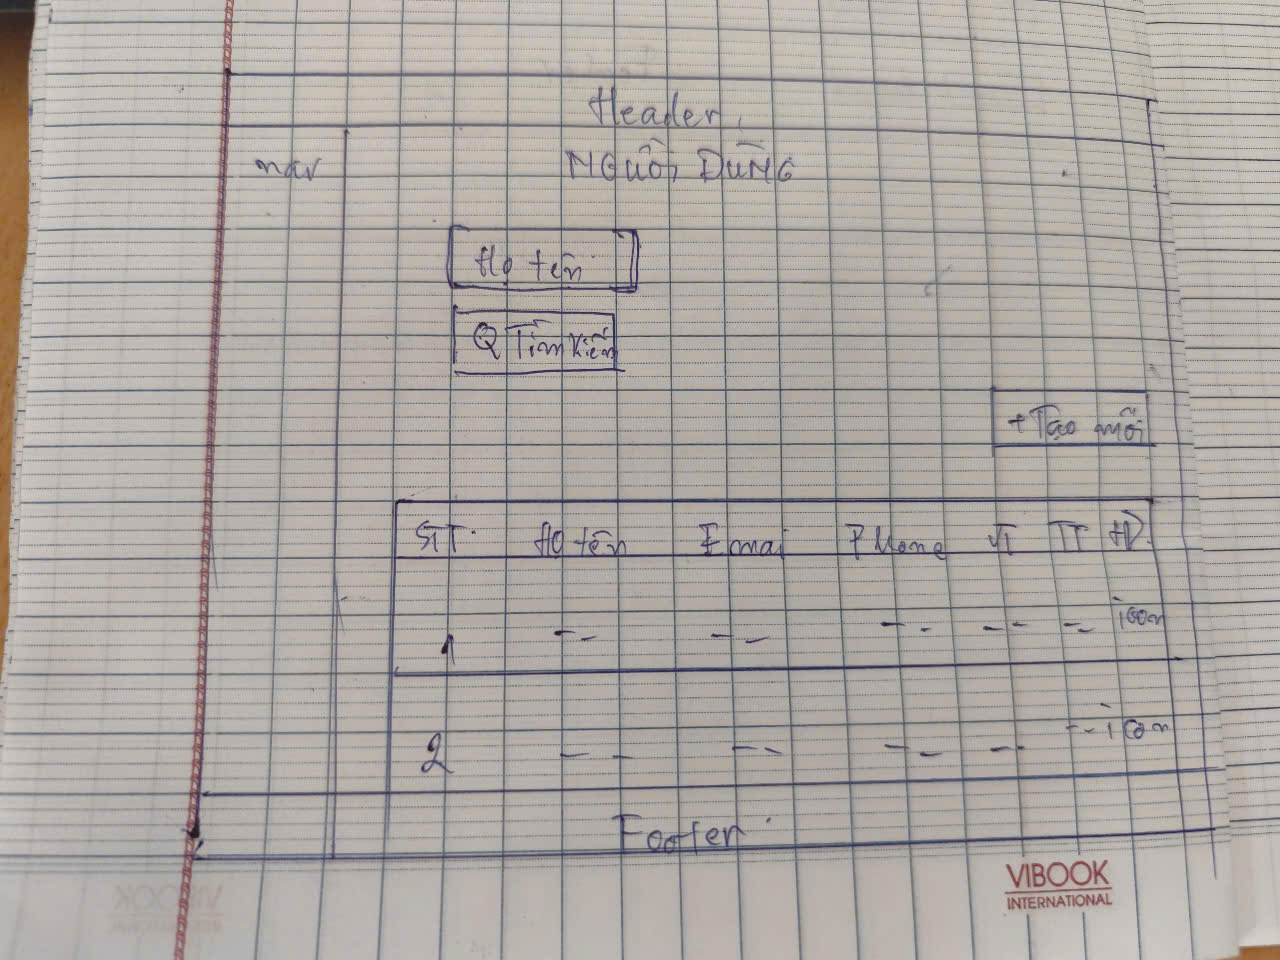 Header
nav
NGƯỜI DÙNG
Họ tên
Q Tìm kiếm
+ Tạo mới
STT Họ tên Email Phone VT TT HĐ
1 -- -- -- -- -- icon
2 -- -- -- -- -- icon
Footer
VIBOOK
INTERNATIONAL